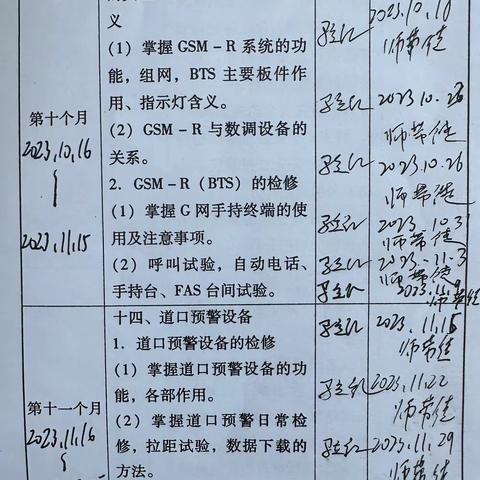 义
(1) 掌握 GSM－R 系统的功
能，组网，BTS 主要板件作
用、指示灯含义。
(2) GSM－R 与数调设备的
关系。
2. GSM－R（BTS）的检修
(1) 掌握 G 网手持终端的使
用及注意事项。
(2) 呼叫试验，自动电话、
手持台、FAS 台间试验。
第十个月
2023.10.16
2023.11.15
2023.10.10
师带徒
2023.10.26
师带徒
2023.10.26
师带徒
2023.10.3
师带徒
2023.11.3
师带徒
2023.11.9
师带徒
十四、道口预警设备
1. 道口预警设备的检修
(1) 掌握道口预警设备的功
能，各部作用。
(2) 掌握道口预警日常检
修，拉距试验，数据下载的
方法。
第十一个月
2023.11.16
2023.11.15
师带徒
2023.11.22
师带徒
2023.11.29
师带徒